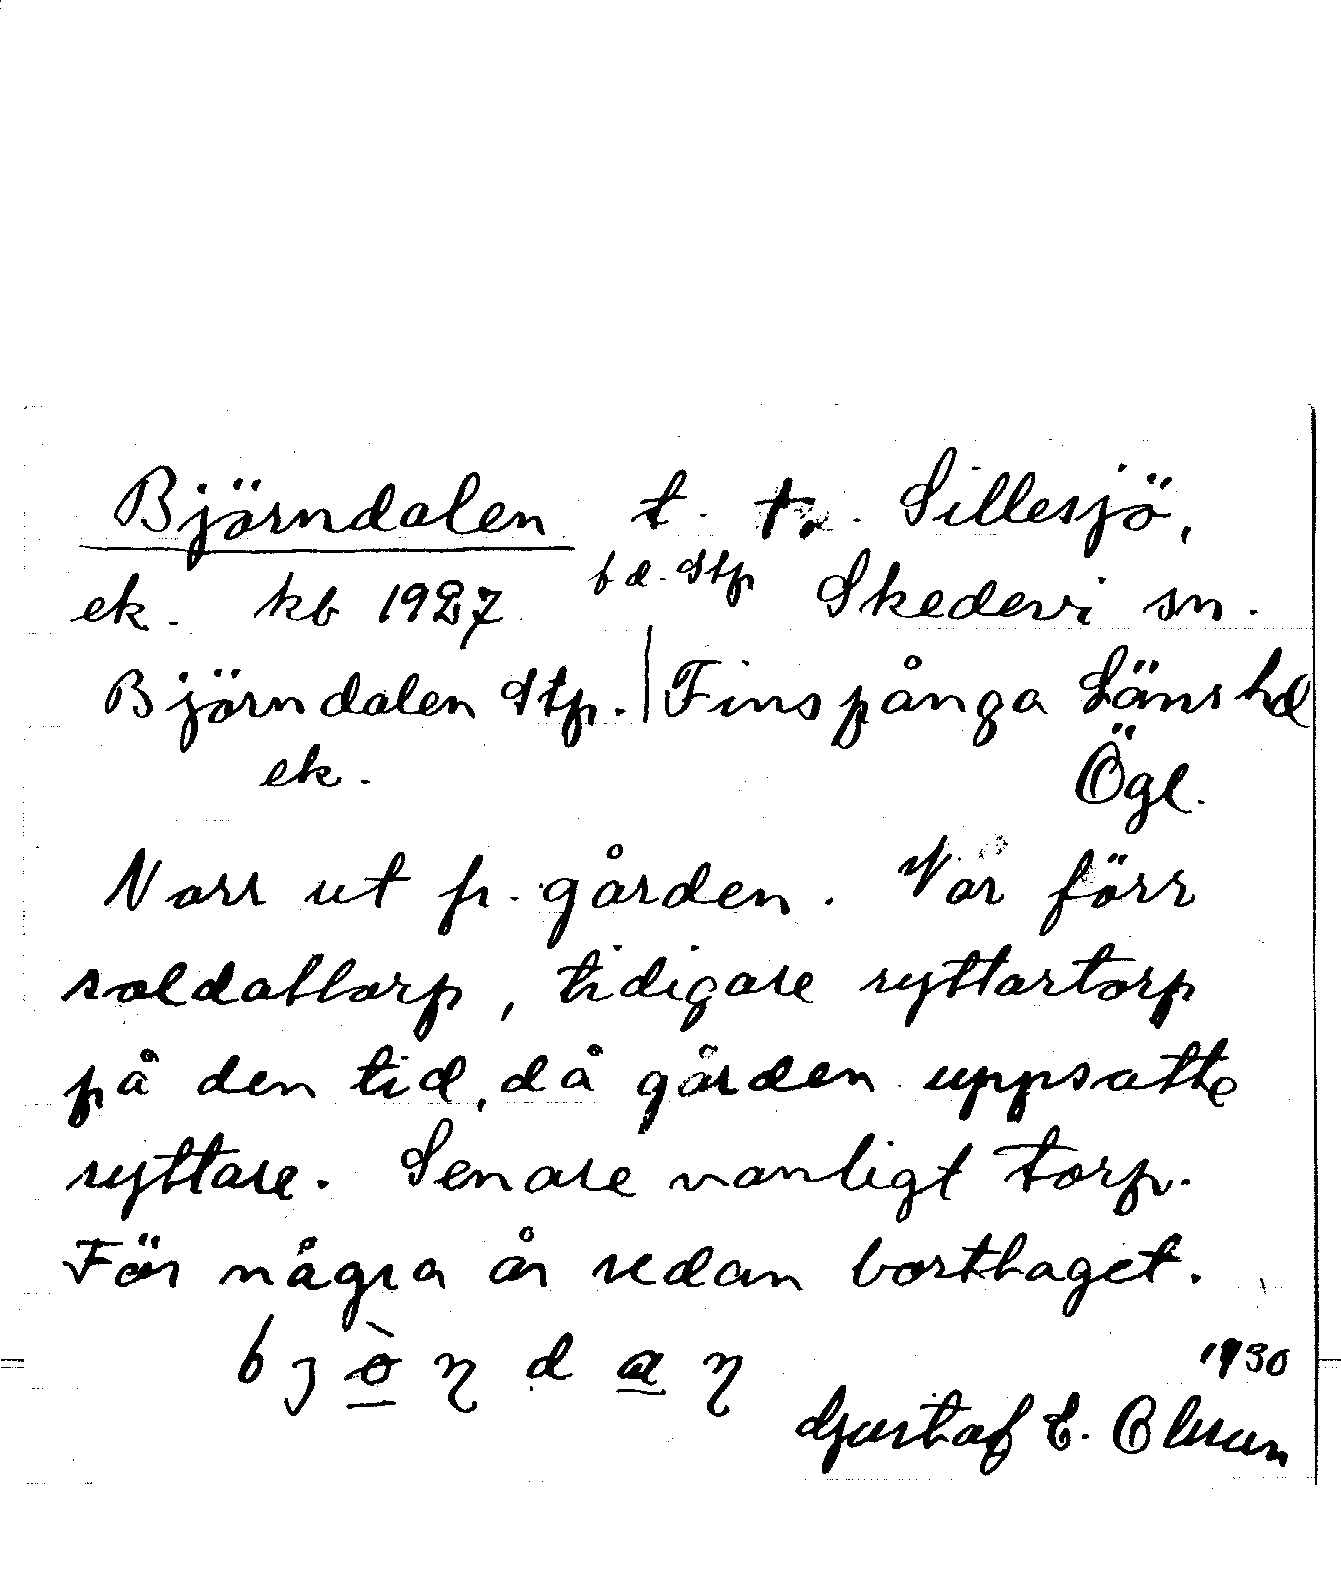 Björndalen t. tr. Sillesjö,
ek. kb 1927 bd. Stp Skedevi sn.
Björndalen Stp. | Finspånga Läns hd
ek. Ögl.
Norr ut fr. gården. Var förr
soldattorp, tidigare ryttartorp
på den tid, då gården uppsatte
ryttare. Senare vanligt torp.
För några år sedan borttaget.
1930
Gustaf E. Olsson